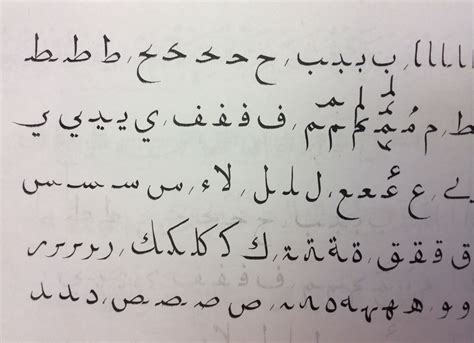 ا ا ا ا ا، ب ببب، ح ححح، ططط
ط، م مُممم، ف ففف، ي ييي
ع ععع، ل للل، لا ء، س سسس
ق ققق، ة ةةة، ك ككك، ررررر
و و، ه ههه، ص صصص، د دد